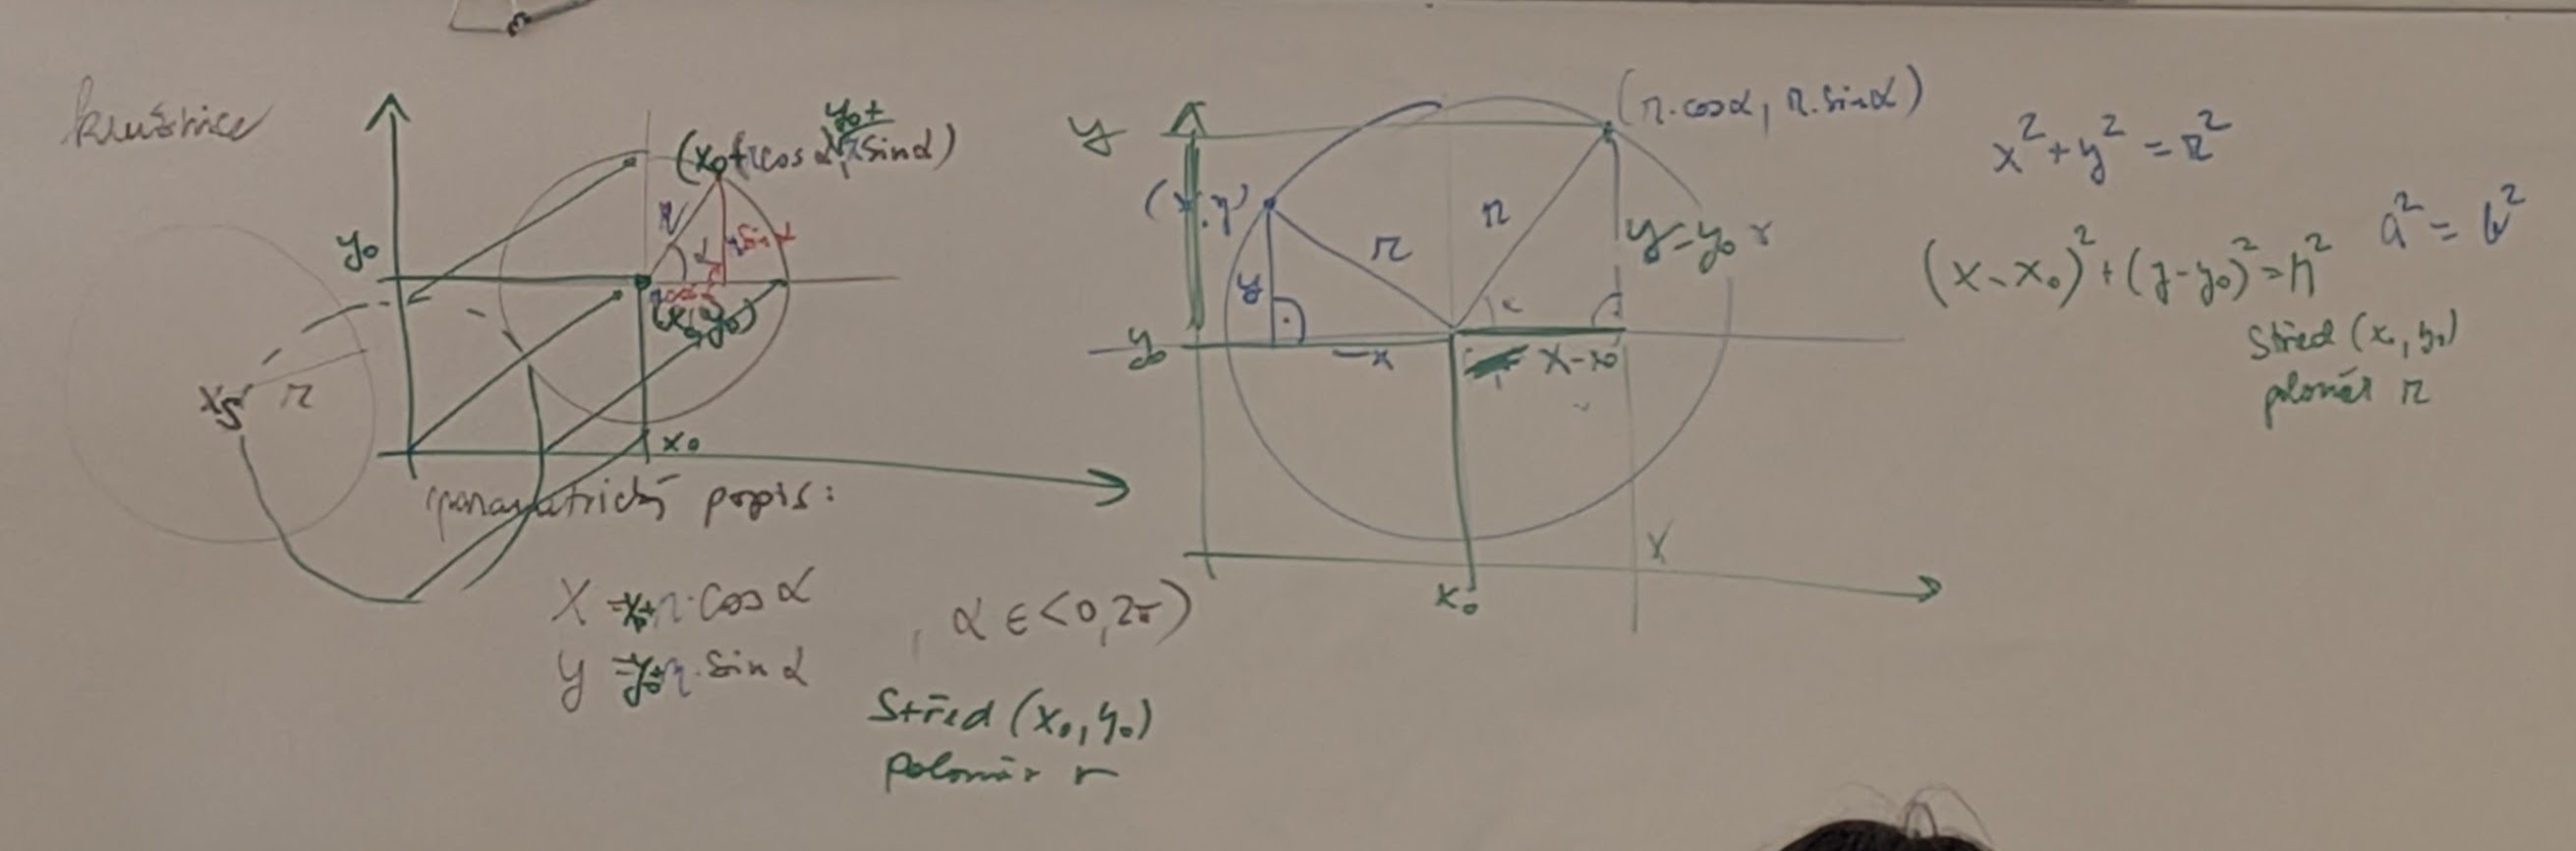 kružnice
(x₀+r cos α, y₀+r sin α)
y₀
r
α
r sin α
r cos α
(x₀, y₀)
S
r
x₀
parametrický popis:
x = x₀+r·cos α
y = y₀+r·sin α
, α ∈ <0,2π)
Střed (x₀, y₀)
poloměr r
y
(r·cosα, r·sinα)
r
r
y-y₀
y
y₀
-x
x-x₀
x₀
x
x²+y² = r²
a² = b²
(x-x₀)²+(y-y₀)²=r²
Střed (x₀, y₀)
poloměr r